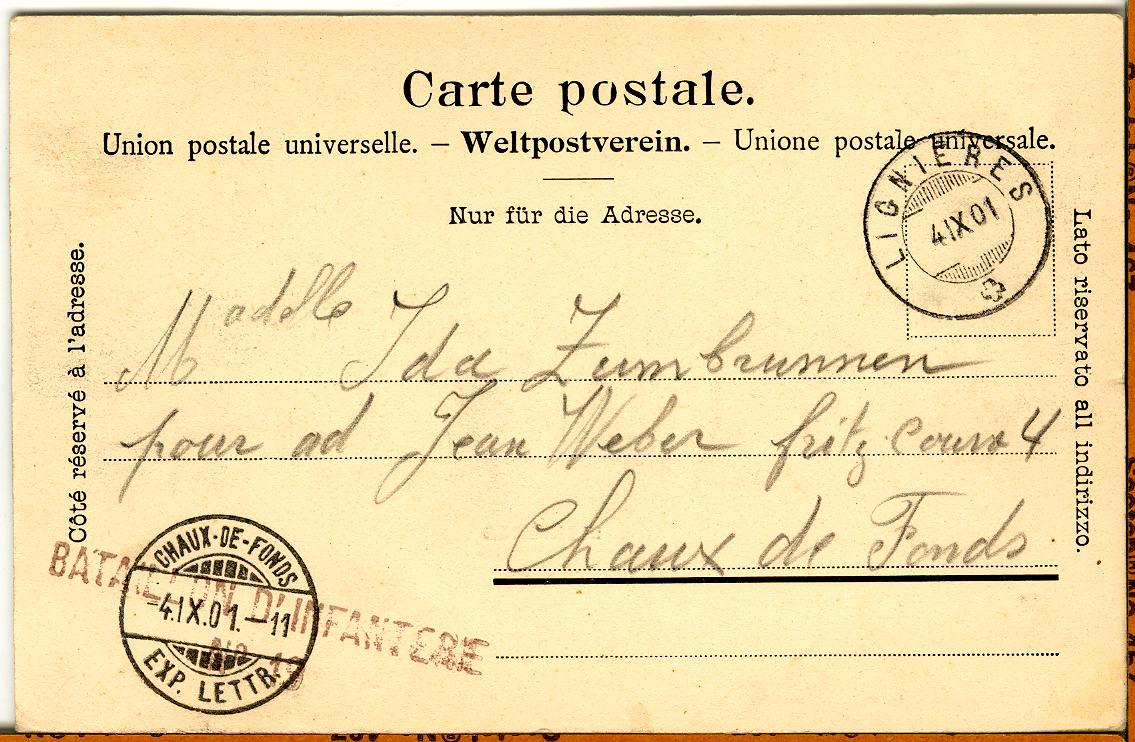 Carte postale.
Union postale universelle. – Weltpostverein. – Unione postale universale.
Nur für die Adresse.
Côté réservé à l'adresse.
Lato riservato all indirizzo.
LIGNIERES
4 IX 01
Madelle Ida Zumbrunnen
pour ad Jean Weber fritz courv 4
Chaux de Fonds
CHAUX-DE-FONDS
-4.IX.01.-11
EXP. LETTR.
BATAILLON D'INFANTERIE
No